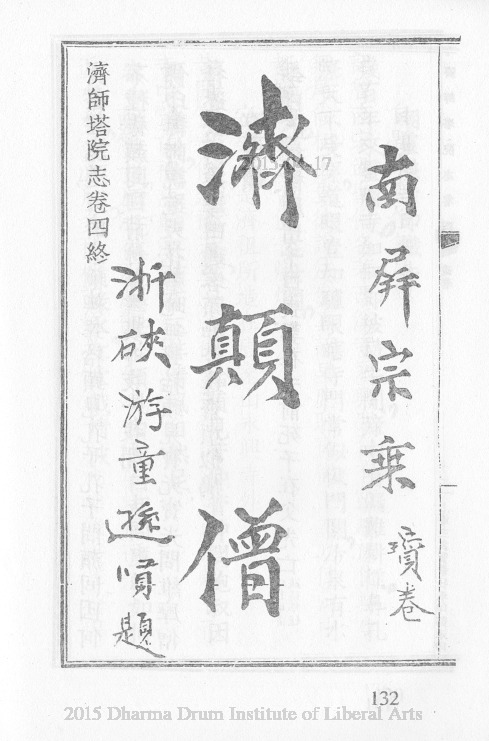 南屏宗乘 卷
濟顛僧
浙硤游童 題
濟師塔院志卷四終
132
2015 Dharma Drum Institute of Liberal Arts